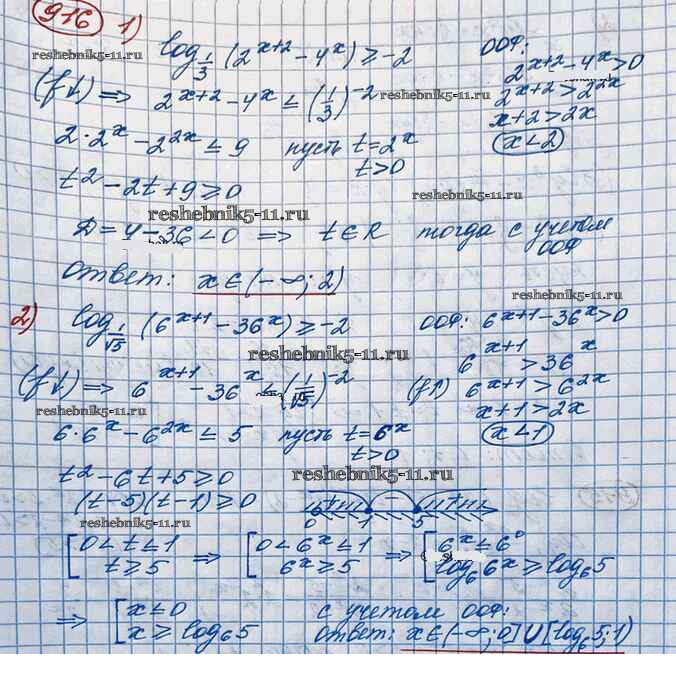 916 1)
log_{1/3} (2^{x+2} - 4^x) ≥ -2
ООФ:
2^{x+2} - 4^x > 0
2^{x+2} > 2^{2x}
x+2 > 2x
x < 2
reshebnik5-11.ru
(f↓) ⇒ 2^{x+2} - 4^x ≤ (1/3)^{-2}
reshebnik5-11.ru
2·2^x - 2^{2x} ≤ 9 пусть t = 2^x
t > 0
t² - 2t + 9 ≥ 0
reshebnik5-11.ru
reshebnik5-11.ru
Д = 4 - 36 < 0 ⇒ t ∈ R тогда с учетом
ООФ
Ответ: x ∈ (-∞; 2)
reshebnik5-11.ru
2) log_{1/√5} (6^{x+1} - 36^x) ≥ -2
ООФ: 6^{x+1} - 36^x > 0
6^{x+1} > 36^x
(f↑) 6^{x+1} > 6^{2x}
x+1 > 2x
x < 1
reshebnik5-11.ru
(f↓) ⇒ 6^{x+1} - 36^x ≤ (1/√5)^{-2}
reshebnik5-11.ru
6·6^x - 6^{2x} ≤ 5 пусть t = 6^x
t > 0
t² - 6t + 5 ≥ 0
reshebnik5-11.ru
(t-5)(t-1) ≥ 0
0 1 5
reshebnik5-11.ru
[0 < t ≤ 1 ⇒ [0 < 6^x ≤ 1 ⇒ [6^x ≤ 6^0
t ≥ 5 6^x ≥ 5 log_6 6^x ≥ log_6 5
⇒ [x ≤ 0 с учетом ООФ:
x ≥ log_6 5 Ответ: x ∈ (-∞; 0] ∪ [log_6 5; 1)